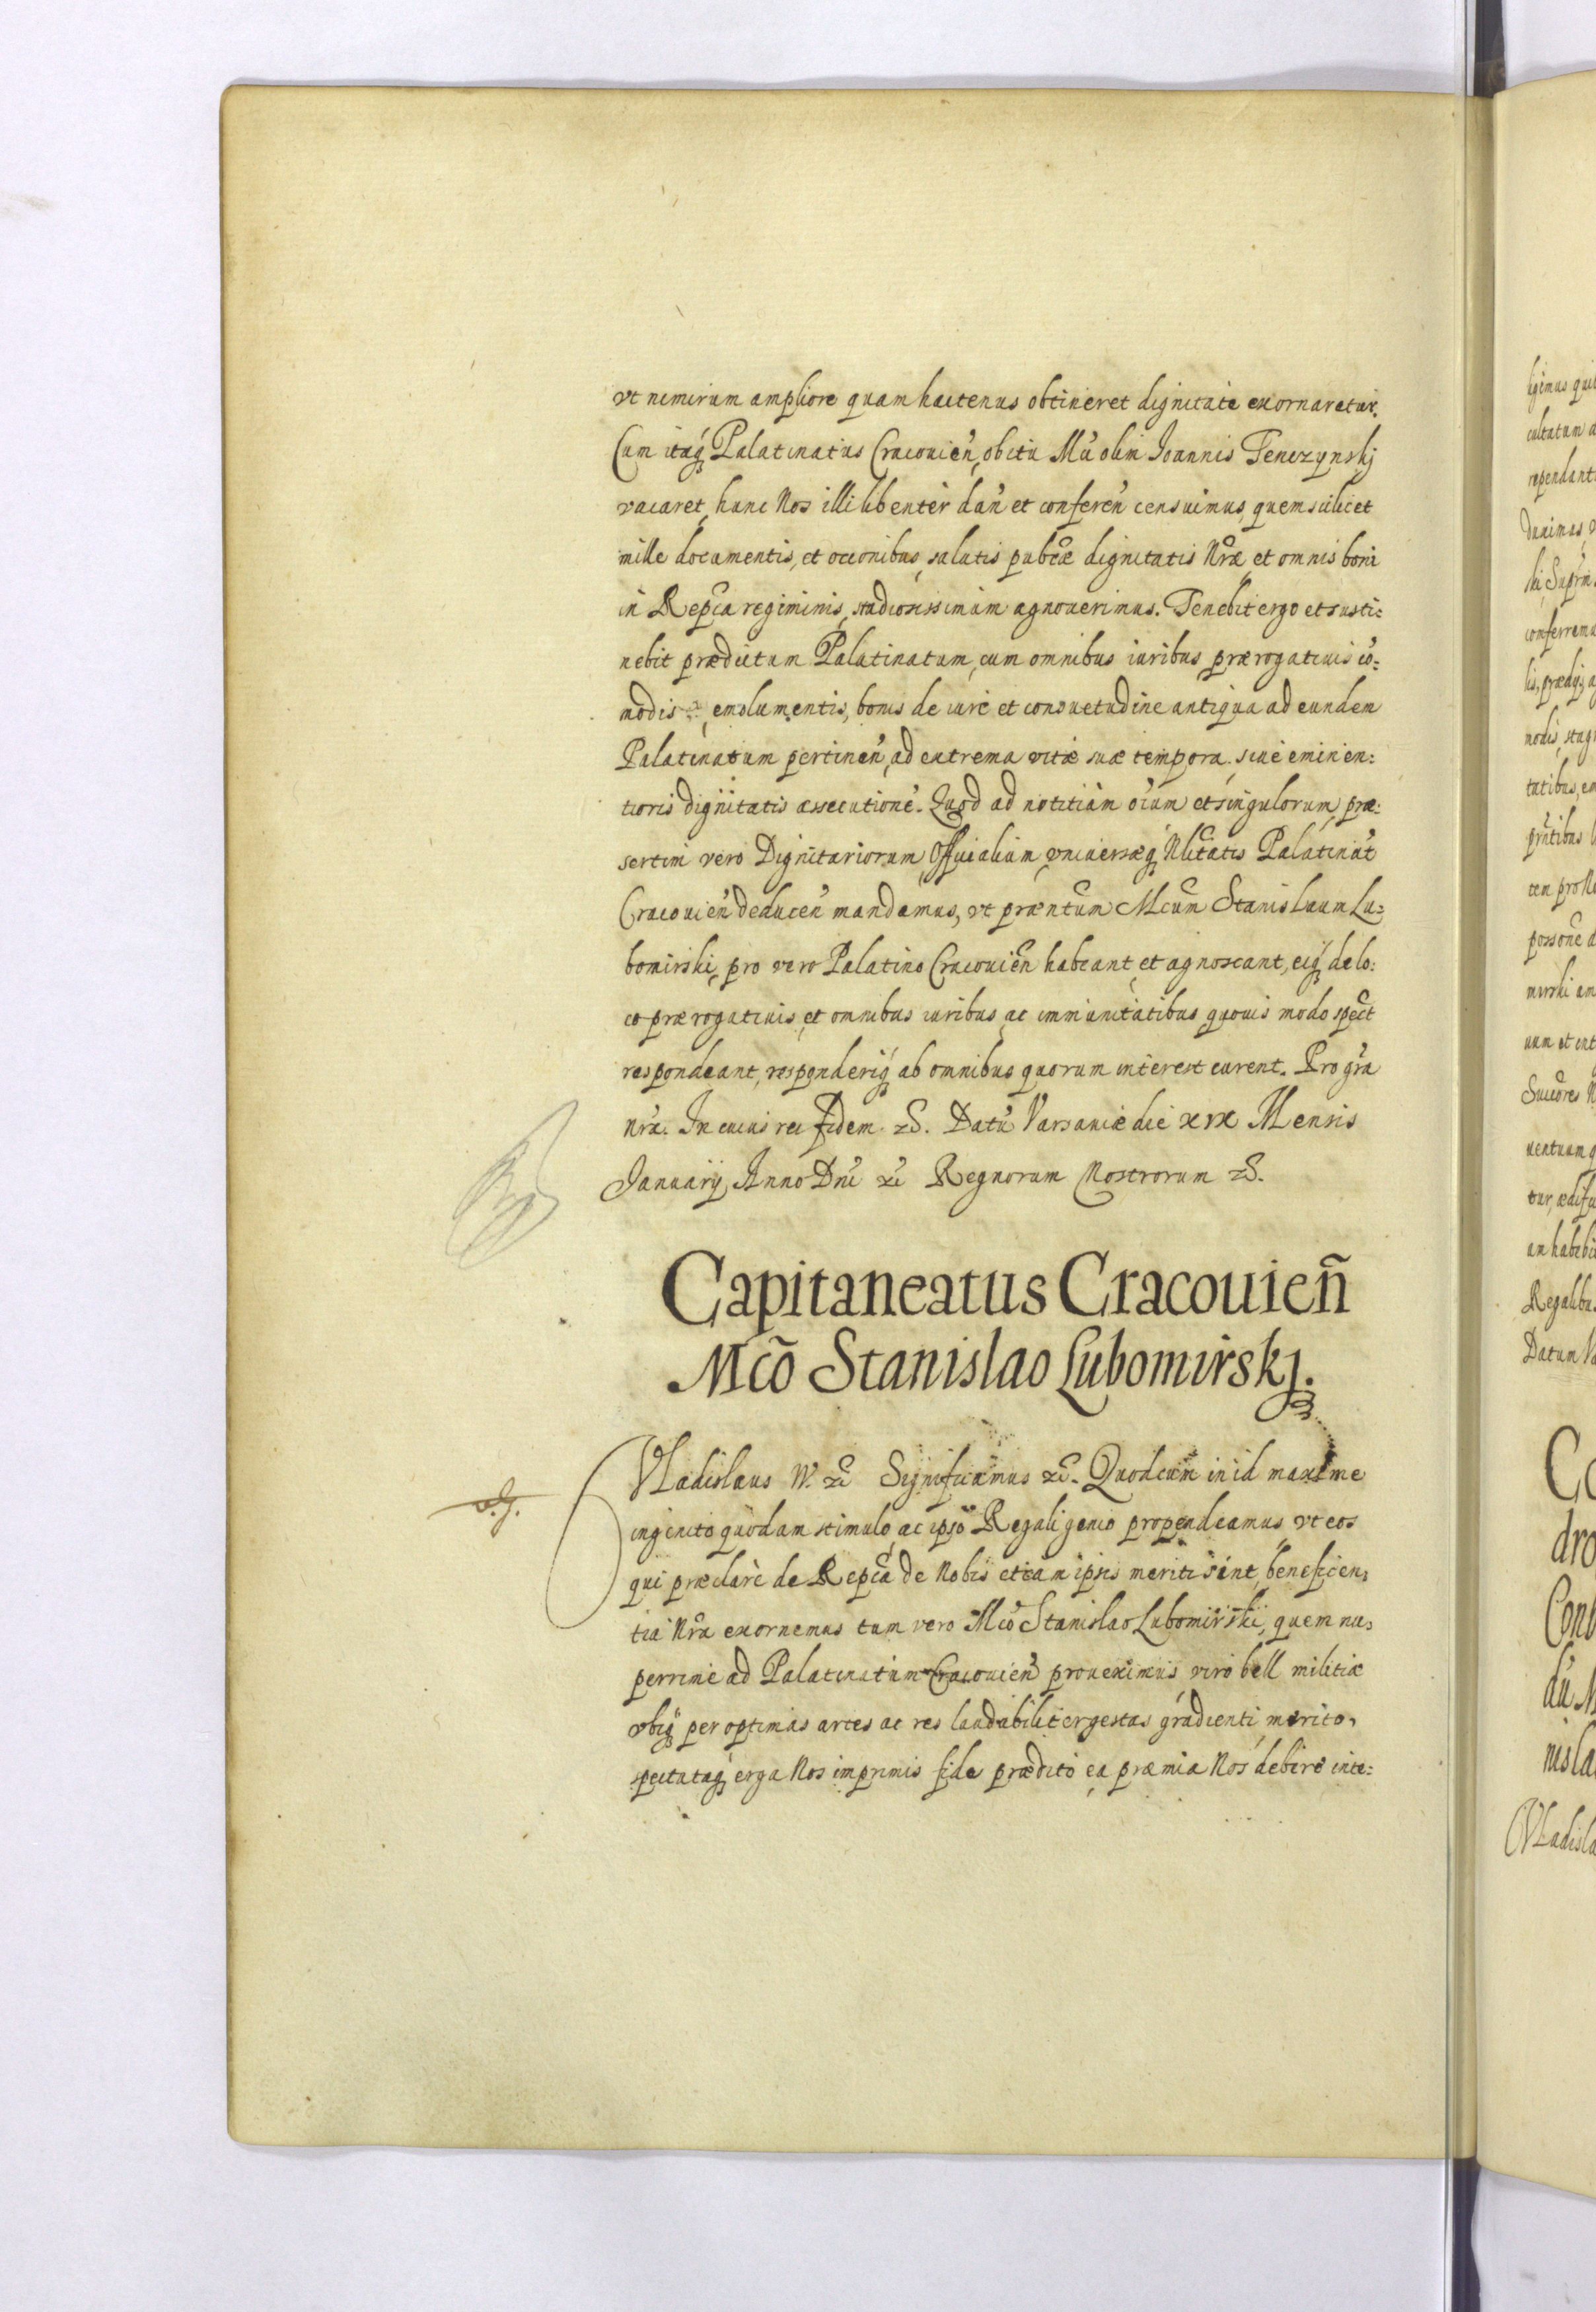 vt nimirum ampliore quam hactenus obtineret dignitate exornaretur.
Cum itaq́ꝫ Palatinatus Cracouień, obitu Mći olim Ioannis Tenczynskj
vacaret, hunc Nos illi libenter dań et conferéń censuimus, quem scilicet
mille documentis, et occonibus, salutis pubcæ dignitatis Nræ, et omnis boni
in Repca regiminis, studiosissimum agnouerimus. Tenebit ergo et susti:
nebit prædictum Palatinatum, cum omnibus iuribus prærogatiuis co:
modis, emolumentis, bonis de iure et consuetudine antiqua ad eundem
Palatinatum pertineń, ad extrema vitæ suæ tempora, siue eminen:
tioris dignitatis assecutione. Quod ad notitiam oium et singulorum, præ:
sertim vero Dignitariorum, Officialium, vniuersæq́ꝫ Nlitatis Palatinat́
Cracouień deduceń mandamus, vt præntum Mcum Stanislaum Lu:
bomirski, pro vero Palatino Cracouień habeant, et agnoscant, eiq́ꝫ de lo:
co prærogatiuis, et omnibus iuribus, ac immunitatibus, quouis modo spect́
respondeant, responderiq́ꝫ ab omnibus quorum interest curent. Pro gra
nra. In cuius rei fidem &. Datu Varsauiæ die xix Mensis
January, Anno Dni &c Regnorum Nostrorum &.
Capitaneatus Cracouieñ
Mcõ Stanislao Lubomirskj.
Vladislaus IV. &c Significamus &c. Quod cum in id maxime
ingenito quodam stimulo, ac ipso Regali genio propendeamus, vt eos
qui præclarè de Repca de Nobis etiam ipsis meriti sint, beneficen:
tia Nra exornemus, tum vero Mco Stanislao Lubomirski, quem nu:
perrime ad Palatinatum Cracouień proueximus, viro bell militiæ
vbiq́ꝫ per optimas artes ac res laudabiliter gestas gradienti, merito,
spectataq́ꝫ erga Nos imprimis fide prædito, ea præmia Nos debere inte: